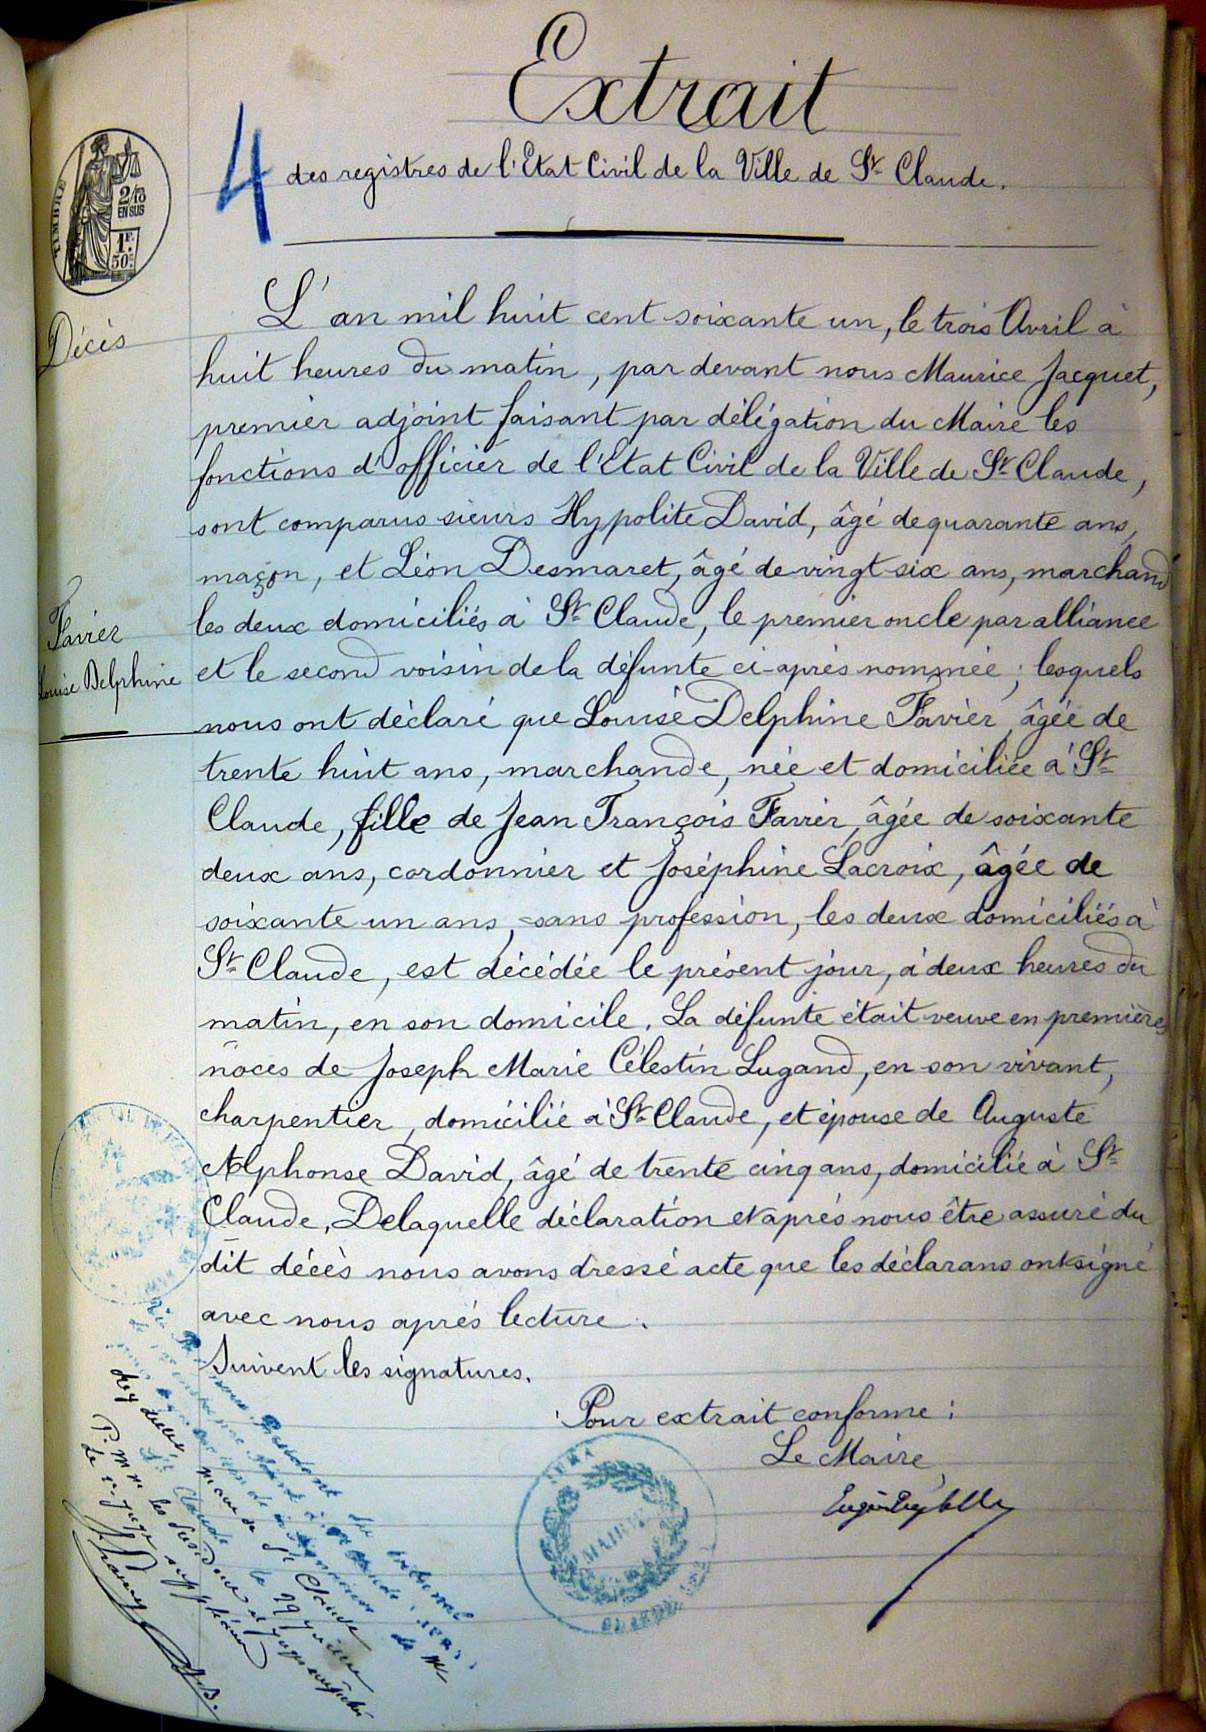 Extrait
4
des registres de l'Etat Civil de la Ville de St Claude.
TIMBRE
2/10
EN SUS
1F.
50c
Décès
L'an mil huit cent soixante un, le trois Avril à
huit heures du matin, par devant nous Maurice Jacquet,
premier adjoint faisant par délégation du Maire les
fonctions d'officier de l'Etat Civil de la Ville de St Claude,
sont comparus sieurs Hypolite David, âgé de quarante ans,
maçon, et Léon Desmaret, âgé de vingt-six ans, marchand
les deux domiciliés à St Claude, le premier oncle par alliance
et le second voisin de la défunte ci-après nommée; lesquels
Favier
Louise Delphine
nous ont déclaré que Louise Delphine Favier, âgée de
trente huit ans, marchande, née et domiciliée à St
Claude, fille de Jean François Favier, âgée de soixante
deux ans, cordonnier et Joséphine Lacroix, âgée de
soixante un ans, sans profession, les deux domiciliés à
St Claude, est décédée le présent jour, à deux heures du
matin, en son domicile. La défunte était veuve en premières
noces de Joseph Marie Célestin Lugand, en son vivant,
charpentier, domicilié à St Claude, et épouse de Auguste
Alphonse David, âgé de trente cinq ans, domicilié à St
Claude, Delaquelle déclaration et après nous être assuré du
dit décès nous avons dressé acte que les déclarans ont signé
avec nous après lecture.
Suivent les signatures.
Pour extrait conforme:
Le Maire
MAIRIE
JURA
tribunal
St Claude